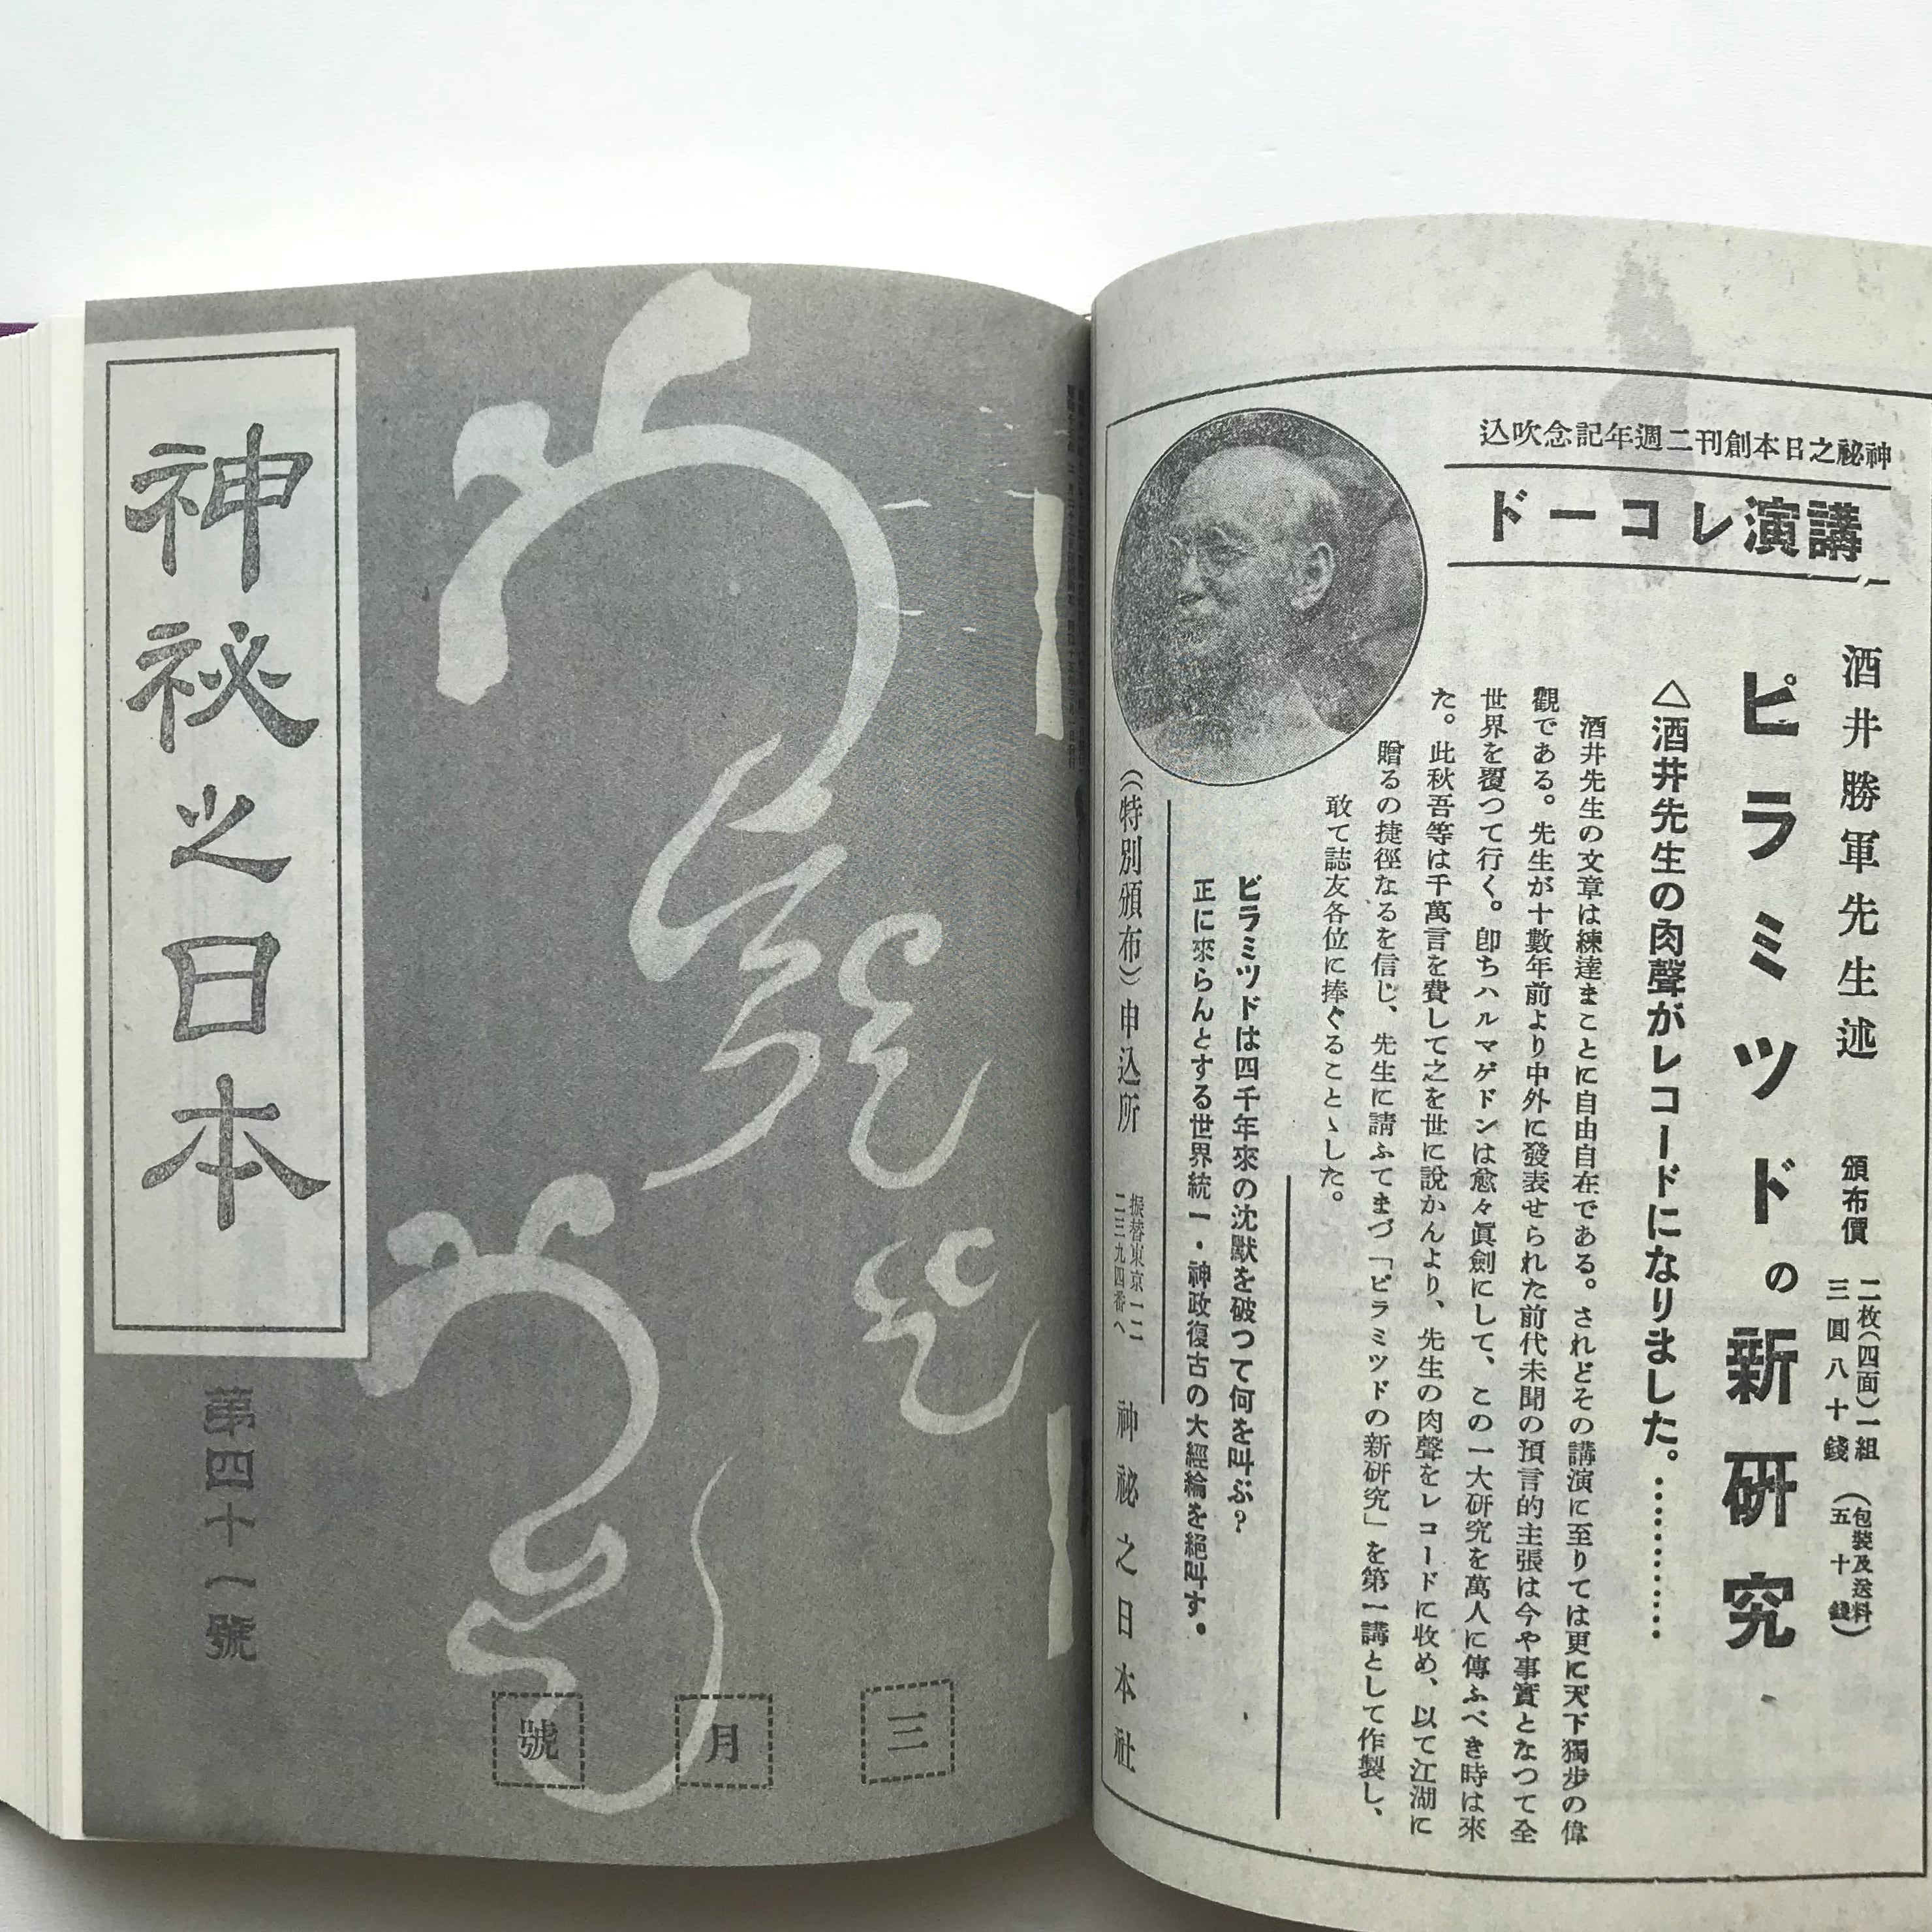 神祕之日本
第四十一號
三月號
神祕之日本創刊二週年記念吹込
講演レコード
酒井勝軍先生述
頒布價
二枚(四面)一組
三圓八十錢
(包裝及送料
五十錢)
ピラミツドの新研究
△酒井先生の肉聲がレコードになりました。…………
酒井先生の文章は練達まことに自由自在である。されどその講演に至りては更に天下獨步の偉
觀である。先生が十數年前より中外に發表せられた前代未聞の預言的主張は今や事實となつて全
世界を覆つて行く。卽ちハルマゲドンは愈々眞劍にして、この一大硏究を萬人に傳ふべき時は來
た。此秋吾等は千萬言を費して之を世に說かんより、先生の肉聲をレコードに收め、以て江湖に
贈るの捷徑なるを信じ、先生に請ふてまづ「ピラミツドの新硏究」を第一講として作製し、
敢て誌友各位に捧ぐることゝした。
ピラミツドは四千年來の沈默を破つて何を叫ぶ?
正に來らんとする世界統一・神政復古の大經綸を絕叫す。
(特別頒布)申込所
振替東京一二
二三九四番へ
神祕之日本社